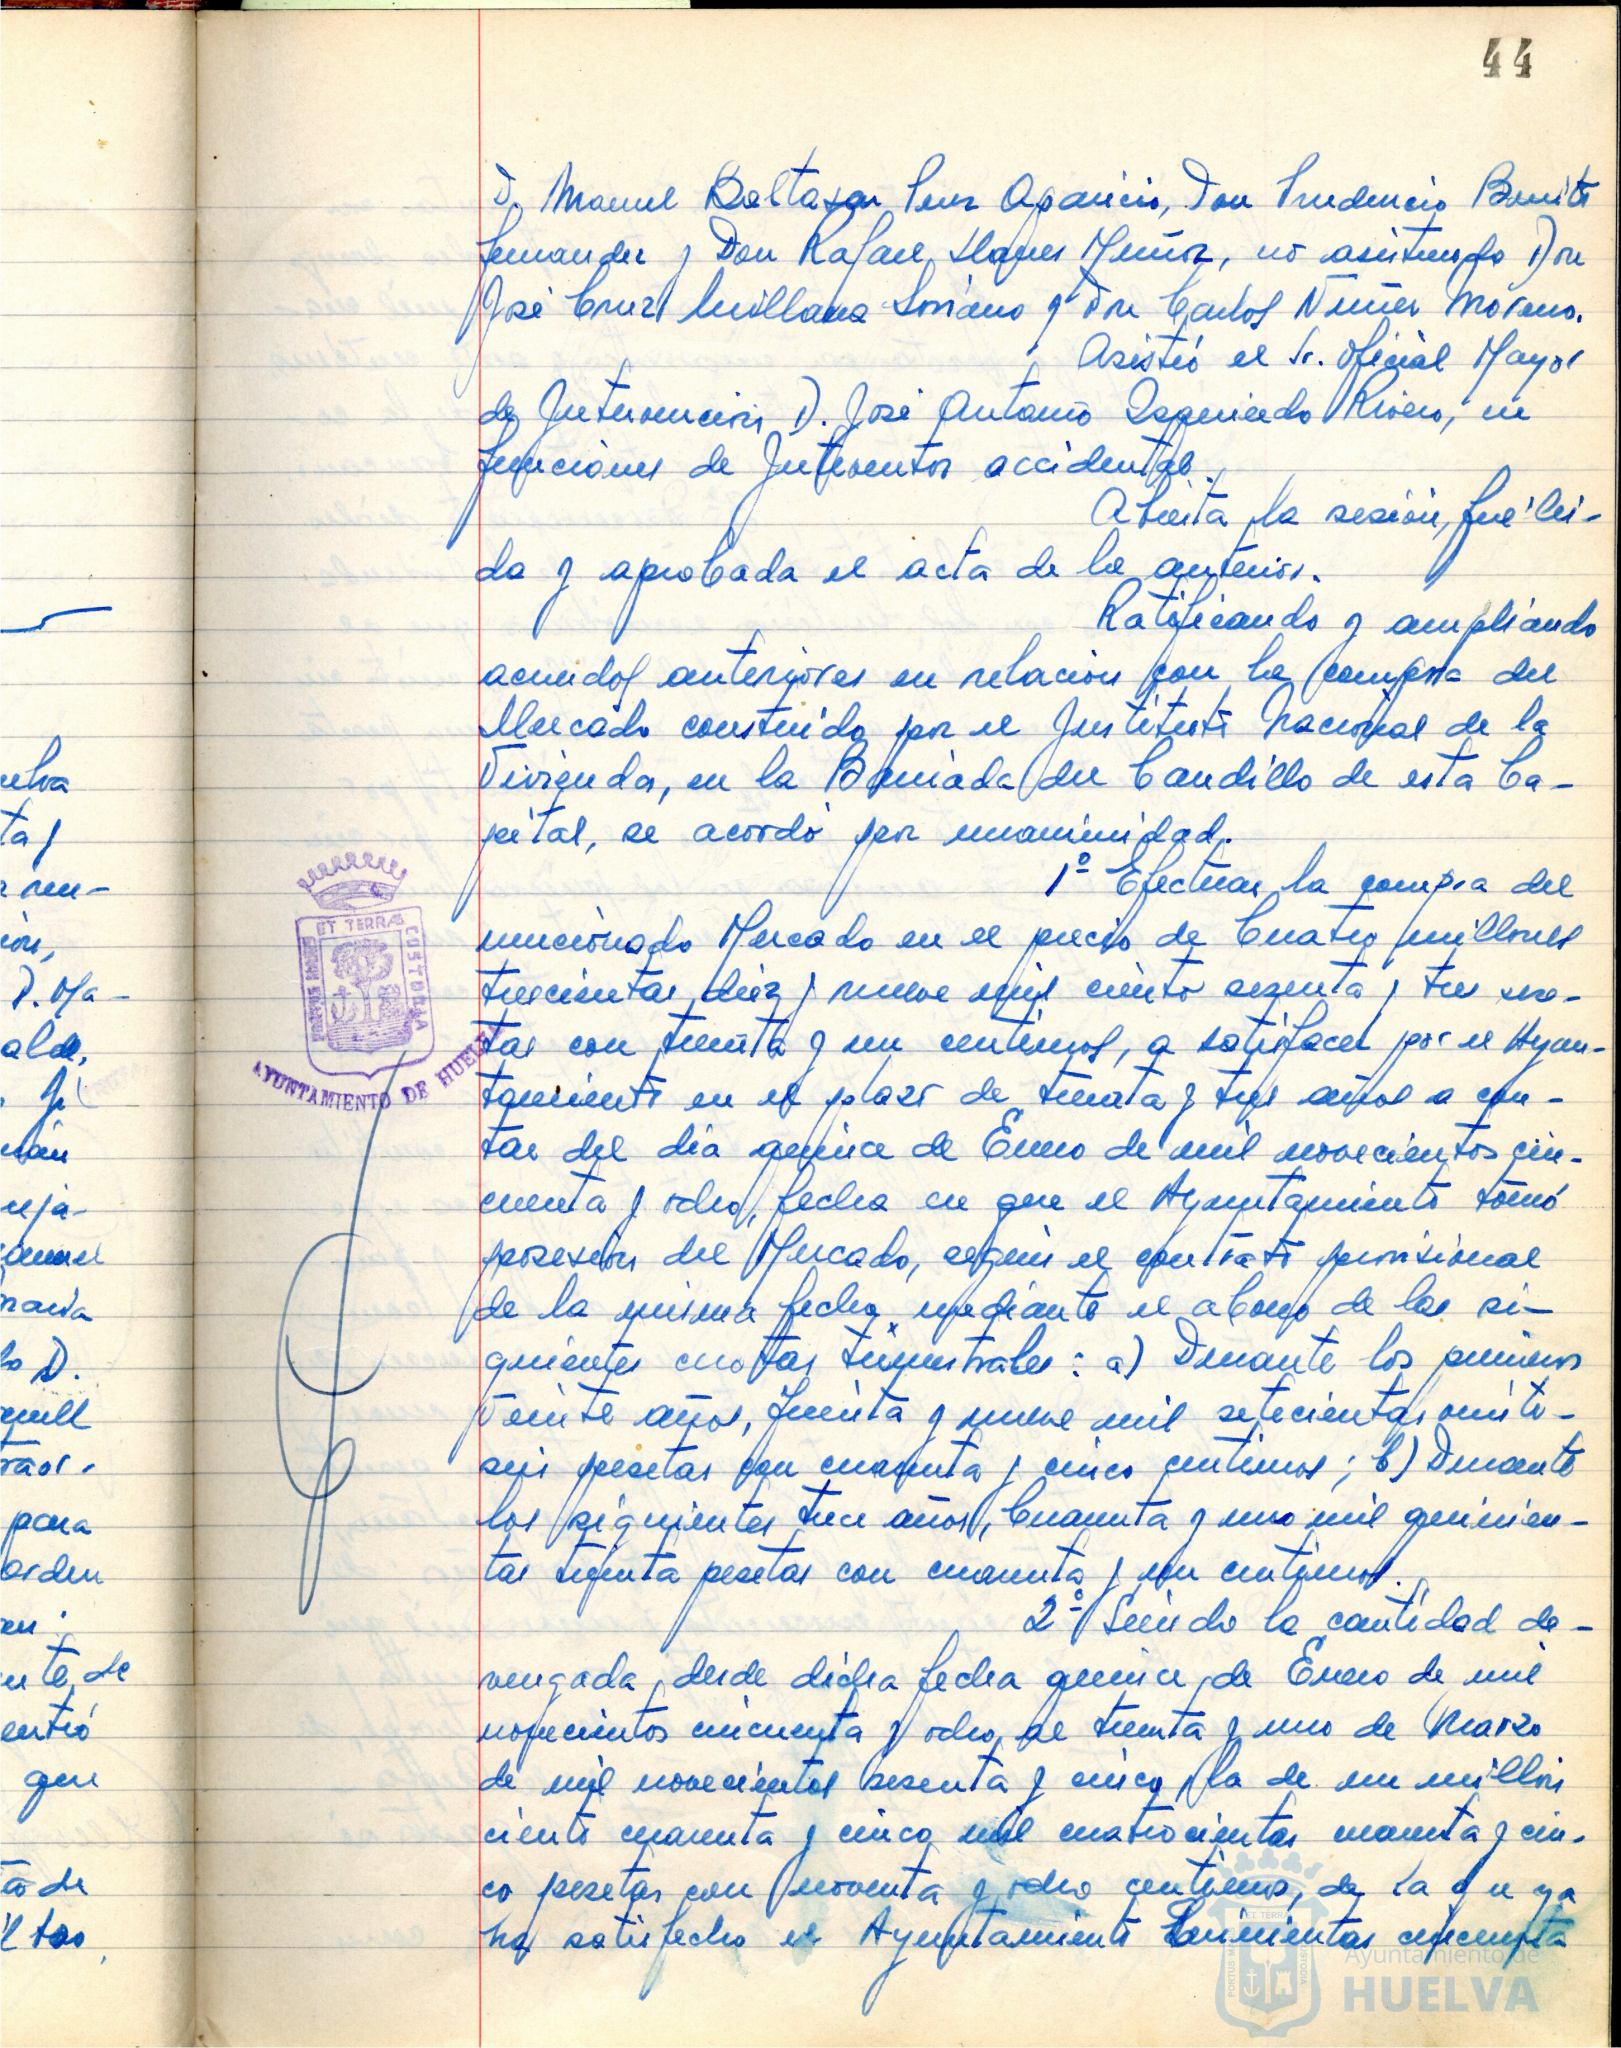 44
D. Manuel Baltasar Perez Aparicio, Don Prudencio Benito
Fernandez y Don Rafael Llanes Muñoz, no asistiendo Don
José Cruz Millana Soriano y Don Carlos Nuñez Moreno.
Asistió el Sr. Oficial Mayor
de Intervención, D. José Antonio Izquierdo Rivero, en
funciones de Interventor accidental.
Abierta la sesión, fué lei-
da y aprobada el acta de la anterior.
Ratificando y ampliando
acuerdos anteriores en relación con la compra del
Mercado construido por el Instituto Nacional de la
Vivienda, en la Barriada del Caudillo de esta Ca-
pital, se acordó por unanimidad.
1º Efectuar la compra del
mencionado Mercado en el precio de Cuatro millones
trescientas diez y nueve mil ciento sesenta y tres pese-
tas con treinta y un centimos, a satisfacer por el Ayun-
tamiento en el plazo de treinta y tres años a con-
tar del dia quince de Enero de mil novecientos cin-
cuenta y ocho, fecha en que el Ayuntamiento tomó
posesión del Mercado, según el contrato provisional
de la misma fecha, mediante el abono de las si-
guientes cuotas trimestrales: a) Durante los primeros
veinte años, treinta y nueve mil setecientas veinti-
seis pesetas con cuarenta y cinco centimos; b) Durante
los siguientes trece años, Cuarenta y una mil quinien-
tas treinta pesetas con cuarenta y un centimos.
2º Siendo la cantidad de-
vengada, desde dicha fecha quince de Enero de mil
novecientos cincuenta y ocho, al treinta y uno de Marzo
de mil novecientos sesenta y cinco, la de un millón
ciento cuarenta y cinco mil cuatrocientas cuarenta y cin-
co pesetas con noventa y ocho centimos, de la que ya
ha satisfecho el Ayuntamiento Quinientas cincuenta
PORTUS MARIS ET TERRAS CUSTODIA
AYUNTAMIENTO DE HUELVA
Ayuntamiento de
HUELVA